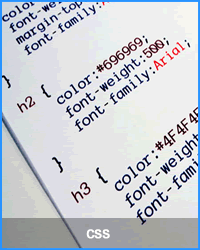 color
font-we
margin-top
font-family:
}
h2 {
color:#696969;
font-weight:500;
font-family:Arial;
}
h3 {
color:#4F4F4F
font-weight
font-fami
CSS